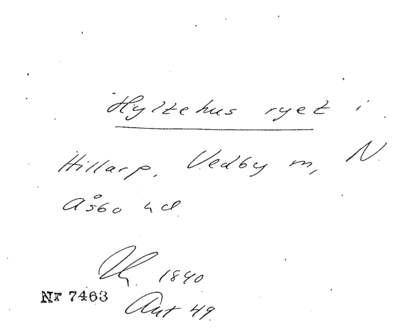 Hyltehus ryet i
Hillarp, Vedby m, N
Åsbo hd
1840
Nr 7463
Ant 49